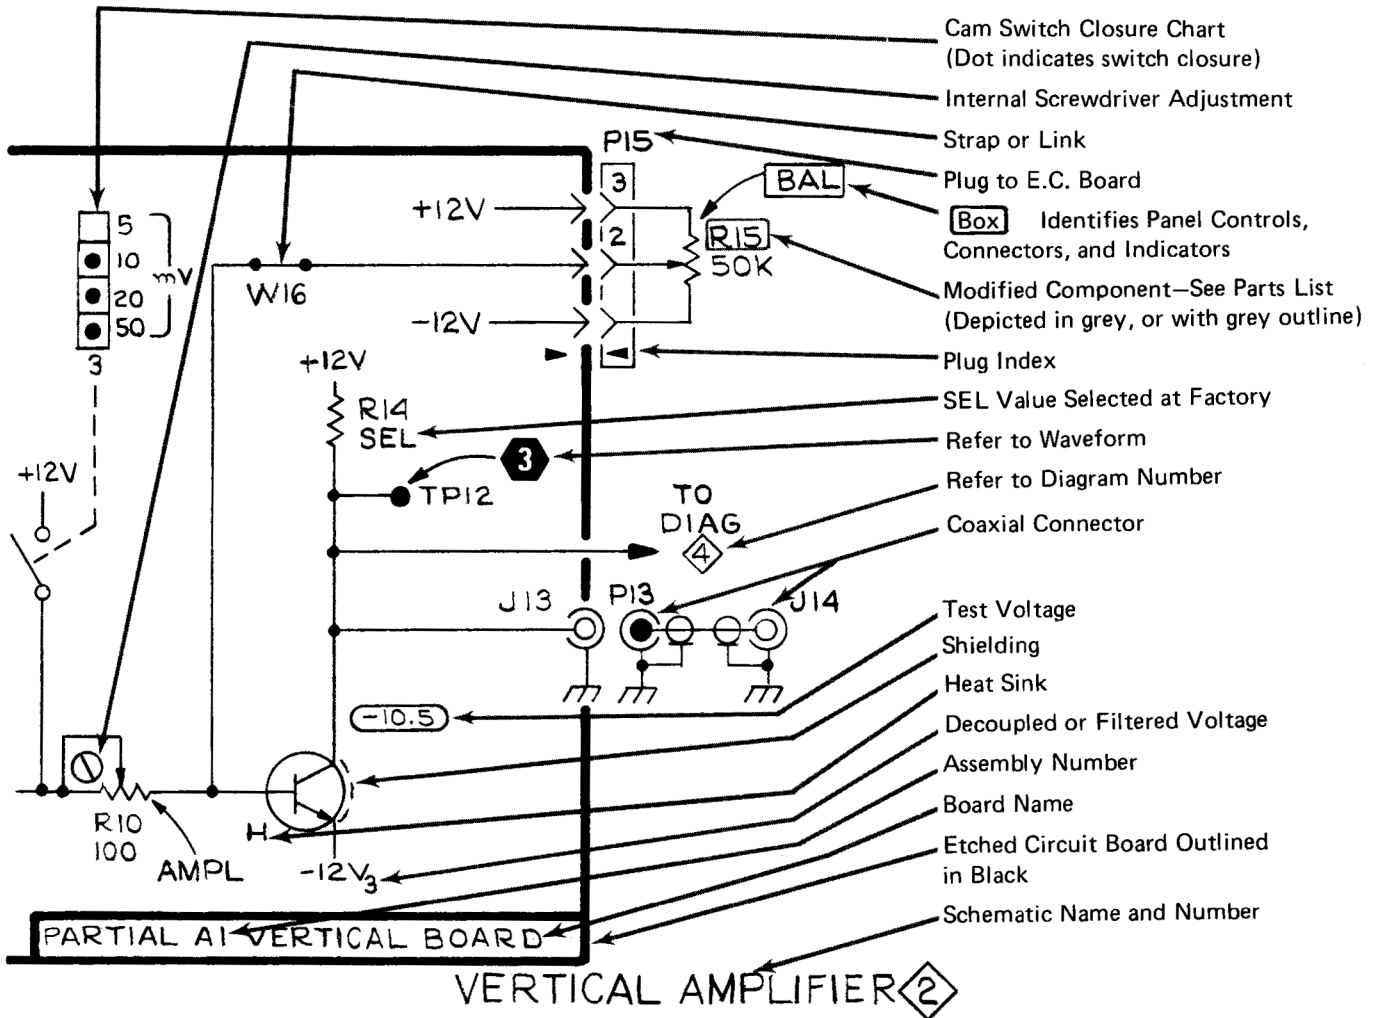 Cam Switch Closure Chart
(Dot indicates switch closure)
Internal Screwdriver Adjustment
Strap or Link
Plug to E.C. Board
Box Identifies Panel Controls,
Connectors, and Indicators
Modified Component—See Parts List
(Depicted in grey, or with grey outline)
Plug Index
SEL Value Selected at Factory
Refer to Waveform
Refer to Diagram Number
Coaxial Connector
Test Voltage
Shielding
Heat Sink
Decoupled or Filtered Voltage
Assembly Number
Board Name
Etched Circuit Board Outlined
in Black
Schematic Name and Number
P15
BAL
3
+12V
R15
50K
2
5
10
20
50
mV
3
W16
-12V
+12V
R14
SEL
3
TP12
+12V
TO
DIAG
4
J13
P13
J14
-10.5
R10
100
AMPL
H
-12V3
PARTIAL A1 VERTICAL BOARD
VERTICAL AMPLIFIER 2